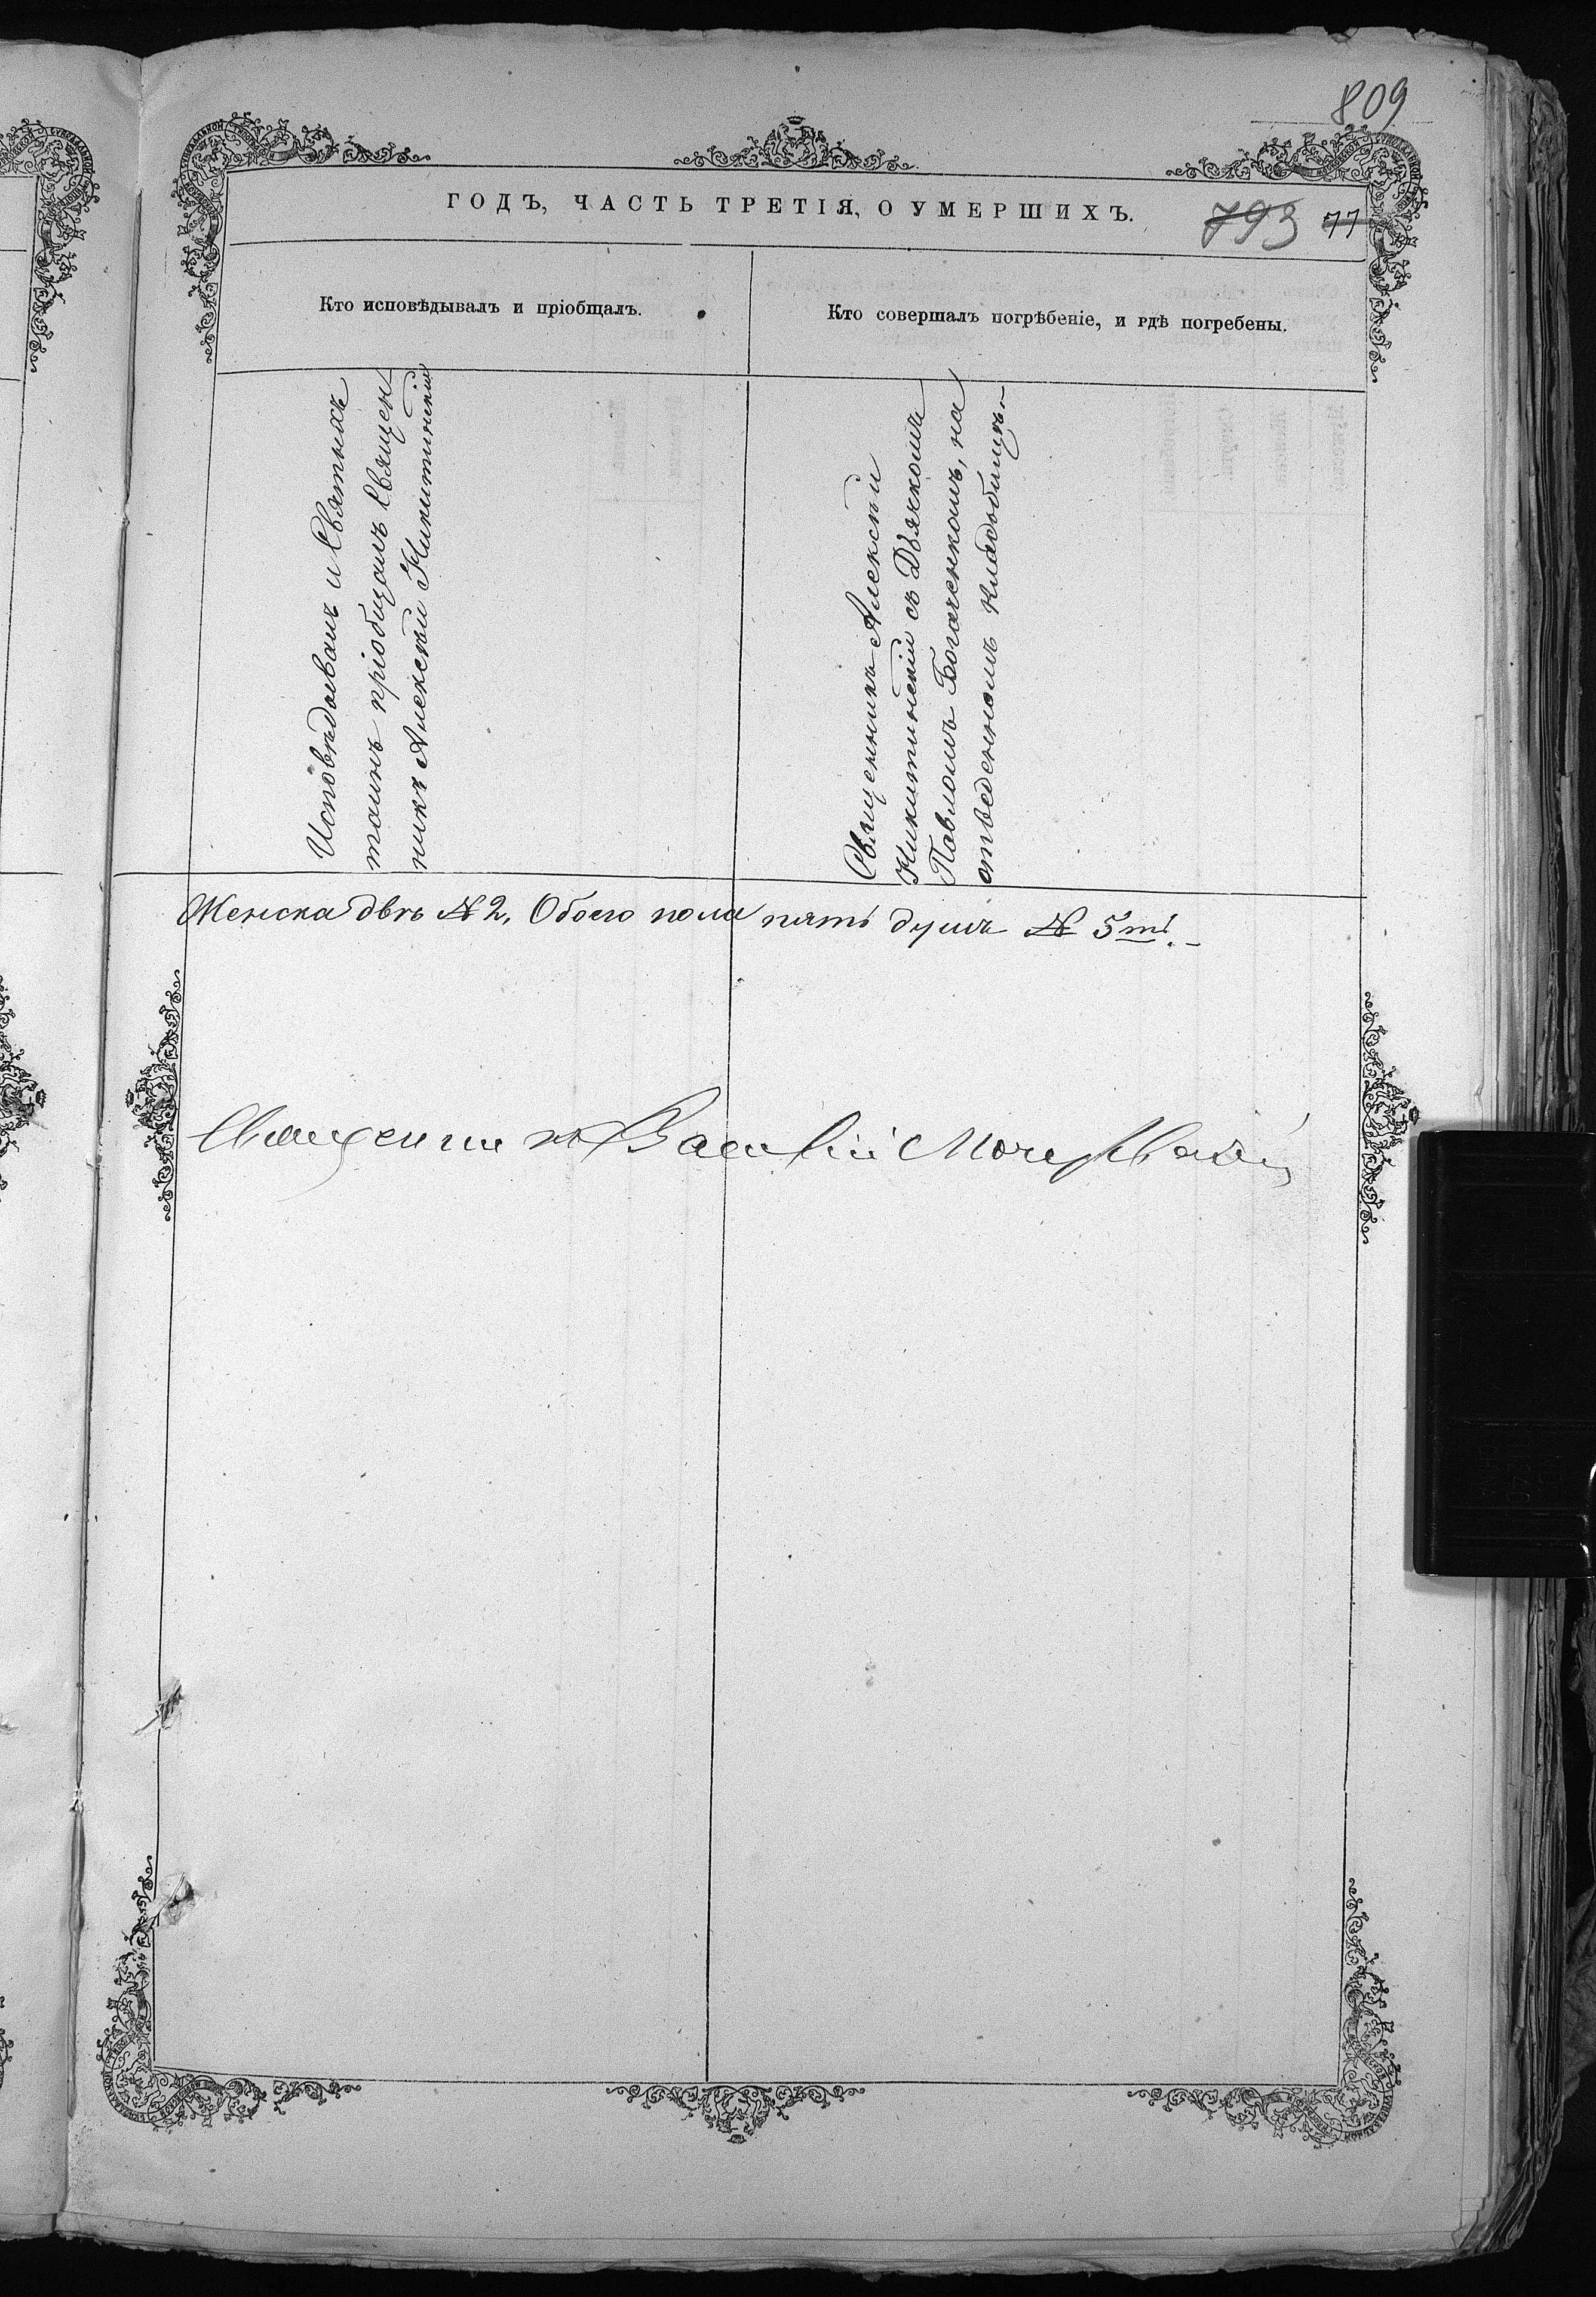 809
ГОДЪ, ЧАСТЬ ТРЕТІЯ, О УМЕРШИХЪ.
793 77
Кто исповѣдывалъ и пріобщалъ.
Кто совершалъ погрѣбеніе, и гдѣ погребены.
Исповѣдывалъ и Святыхъ
таинъ пріобщалъ Священ
никъ Алексѣй Никитинскій
Священникъ Алексѣй
Никитинскій съ Дьячкомъ
Павломъ Богаченкомъ, на
отведенномъ кладбищѣ.
Женска двѣ № 2, Обоего пола пять душъ № 5ть.
Священникъ Василій